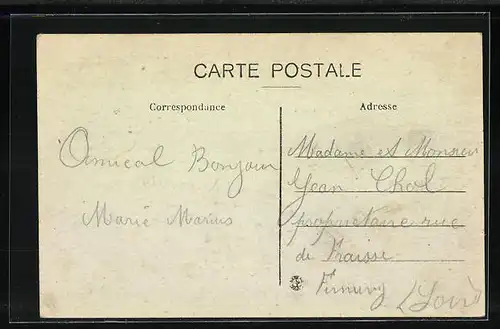 CARTE POSTALE
Correspondance
Amical Bonjour
Marie Marius
Adresse
Madame et Monsieur
Jean Chol
propriétaire rue
de Fraisse
Firminy
(Loire)